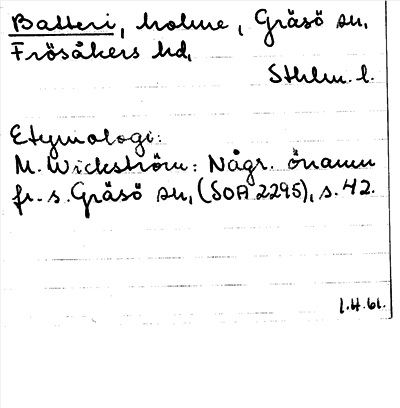 Batteri, holme, Gräsö sn,
Frösåkers hd,
Sthlm. l.
Etymologi:
M. Wickström: Någr. önamn
fr. s. Gräsö sn, (SOA 2295), s. 42.
I.H.61.